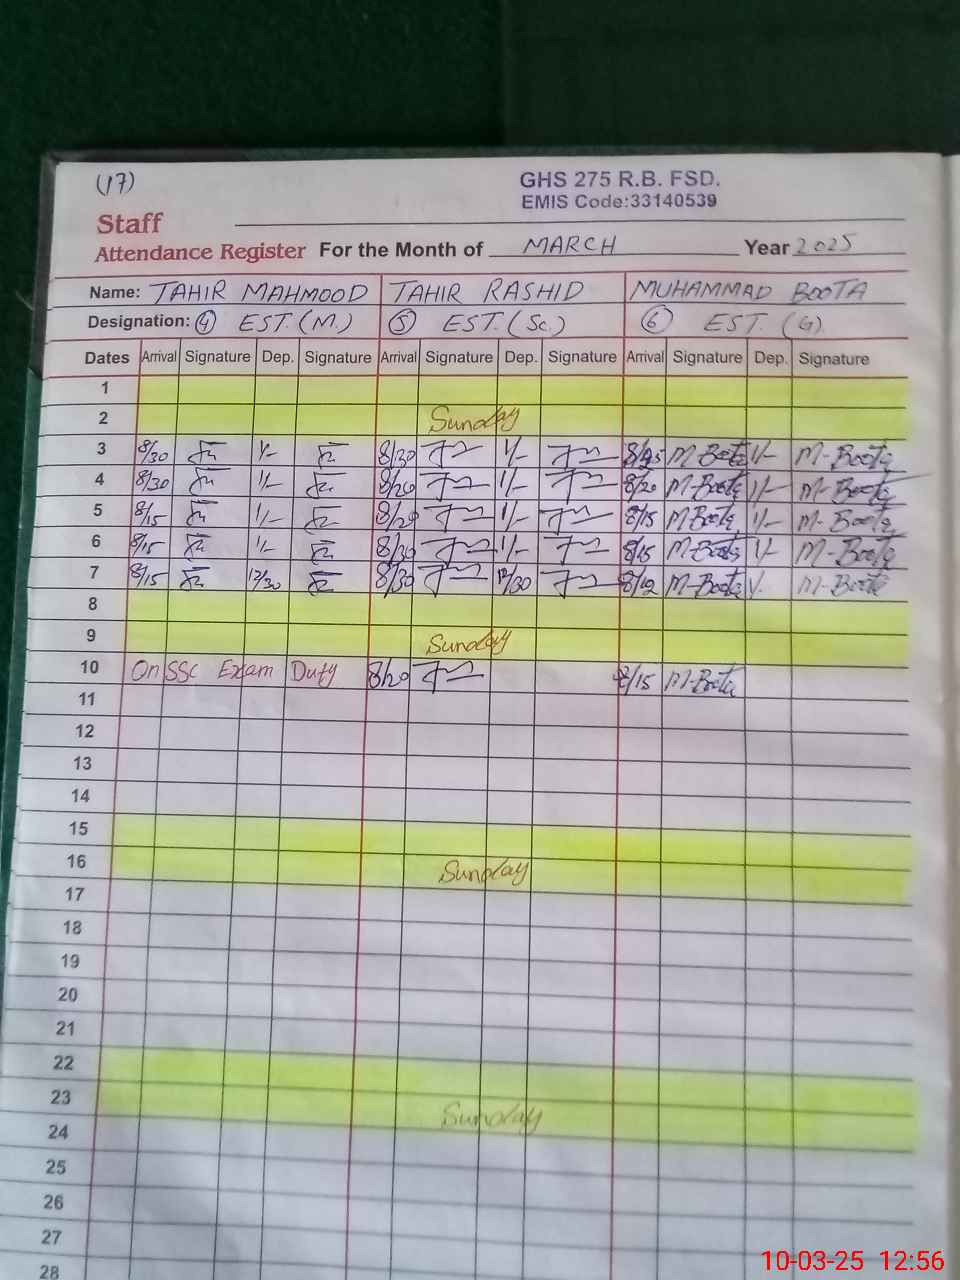 (17)
GHS 275 R.B. FSD.
EMIS Code:33140539
Staff
Attendance Register For the Month of MARCH Year 2025
Name: TAHIR MAHMOOD TAHIR RASHID MUHAMMAD BOOTA
Designation: 4 EST. (M.) 5 EST. (Sc.) 6 EST. (G)
Dates Arrival Signature Dep. Signature Arrival Signature Dep. Signature Arrival Signature Dep. Signature
1
2 Sunday
3 8/30 1/- 8/30 1/- M-Boota 1/- M-Boota
4 8/30 1/- 8/20 1/- 8/20 M-Boota 1/- M-Boota
5 8/15 1/- 8/20 1/- 8/15 M-Boota 1/- M-Boota
6 8/15 1/- 8/30 1/- 8/15 M-Boota 1/- M-Boota
7 8/15 12/30 8/30 12/30 M-Boota M-Boota
8
9 Sunday
10 On SSc Exam Duty 8/20 8/15 M-Boota
11
12
13
14
15
16 Sunday
17
18
19
20
21
22
23 Sunday
24
25
26
27
28
10-03-25 12:56